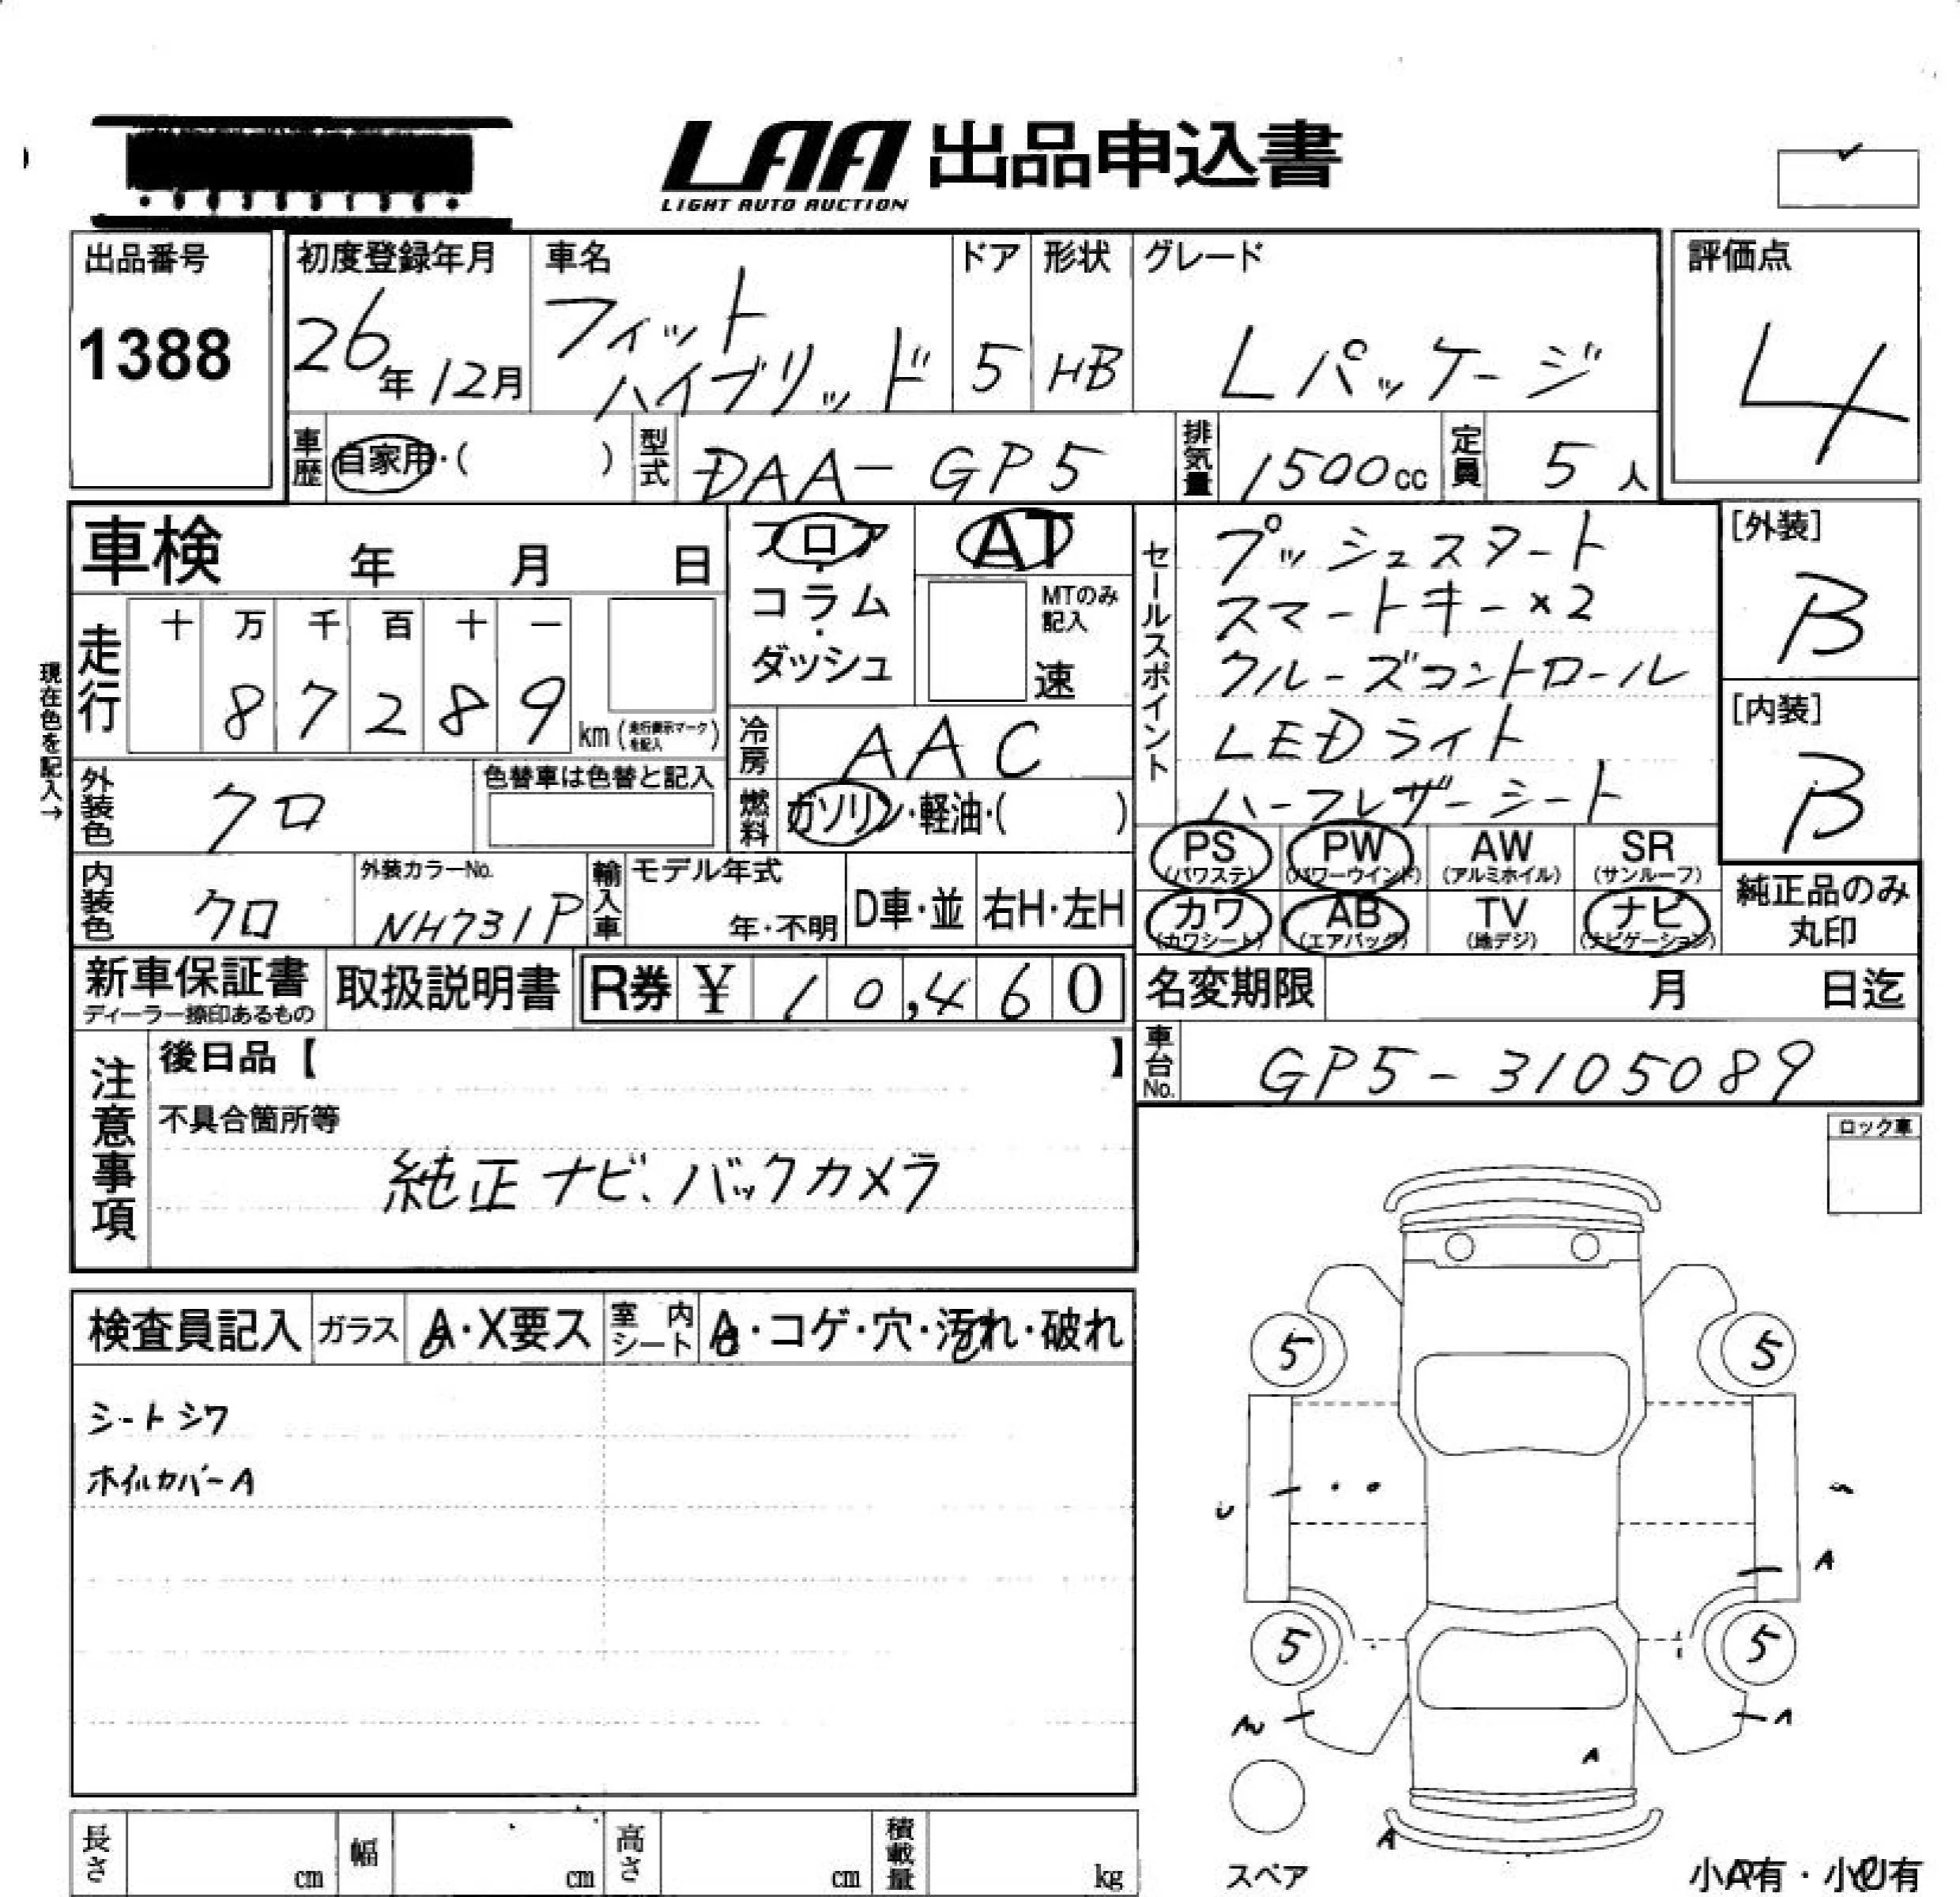 LAA 出品申込書
LIGHT AUTO AUCTION
出品番号
1388
初度登録年月
26年12月
車名
フィット
ハイブリッド
ドア
5
形状
HB
グレード
Lパッケージ
評価点
4
車歴 自家用・( )
型式 DAA-GP5
排気量 1500cc
定員 5人
車検 年 月 日
フロア・コラム・ダッシュ
AT
MTのみ記入
速
セールスポイント
プッシュスタート
スマートキー×2
クルーズコントロール
LEDライト
ハーフレザーシート
[外装]
B
[内装]
B
現在色を記入→
走行
十 万 千 百 十 一
8 7 2 8 9 km (走行表示マークを記入)
冷房 AAC
外装色 クロ
色替車は色替と記入
燃料 ガソリン・軽油・( )
PS (パワステ)
PW (パワーウインド)
AW (アルミホイル)
SR (サンルーフ)
カワ (カワシート)
AB (エアバッグ)
TV (地デジ)
ナビ (ナビゲーション)
純正品のみ
丸印
内装色 クロ
外装カラーNo.
NH731P
輸入車
モデル年式
年・不明
D車・並
右H・左H
新車保証書
ディーラー捺印あるもの
取扱説明書
R券 ¥ 10,460
名変期限 月 日迄
車台No. GP5-3105089
注意事項
後日品【 】
不具合箇所等
純正ナビ、バックカメラ
ロック車
検査員記入
ガラス
A・X要ス
室内シート
・コゲ・穴・汚れ・破れ
シートシワ
ホイルカバーA
5
5
A
5
5
A
A
A
スペア
長さ cm
幅 cm
高さ cm
積載量 kg
小A有・小U有